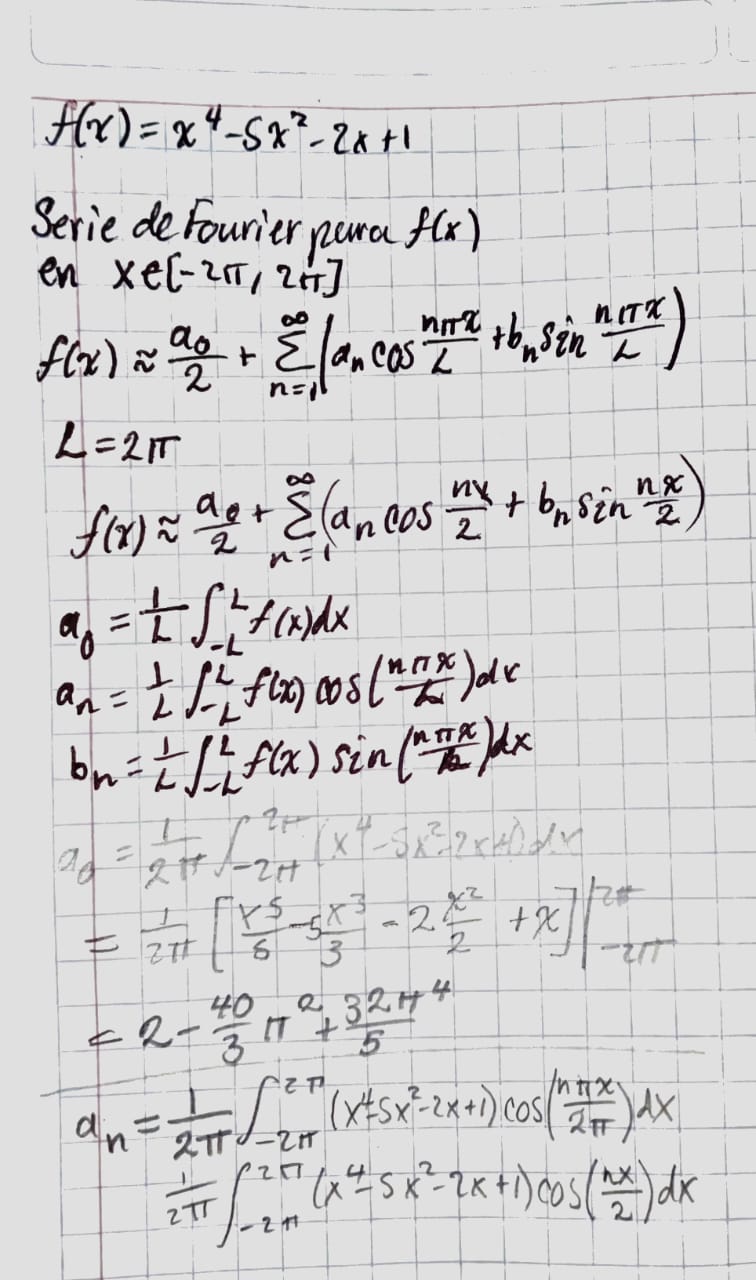 f(x) = x⁴-5x²-2x+1
Serie de Fourier para f(x)
en x∈[-2π, 2π]
f(x) ≈ a₀/2 + ∑_{n=1}^{∞} (aₙ cos nπx/L + bₙ sin nπx/L)
L = 2π
f(x) ≈ a₀/2 + ∑_{n=1}^{∞} (aₙ cos nx/2 + bₙ sin nx/2)
a₀ = 1/L ∫_{-L}^{L} f(x)dx
aₙ = 1/L ∫_{-L}^{L} f(x) cos(nπx/L)dx
bₙ = 1/L ∫_{-L}^{L} f(x) sin(nπx/L)dx
a₀ = 1/2π ∫_{-2π}^{2π} (x⁴-5x²-2x+1)dx
= 1/2π [x⁵/5 - 5x³/3 - 2x²/2 + x]|_{-2π}^{2π}
= 2 - 40/3 π² + 32π⁴/5
aₙ = 1/2π ∫_{-2π}^{2π} (x⁴-5x²-2x+1) cos(nπx/2π)dx
1/2π ∫_{-2π}^{2π} (x⁴-5x²-2x+1) cos(nx/2)dx